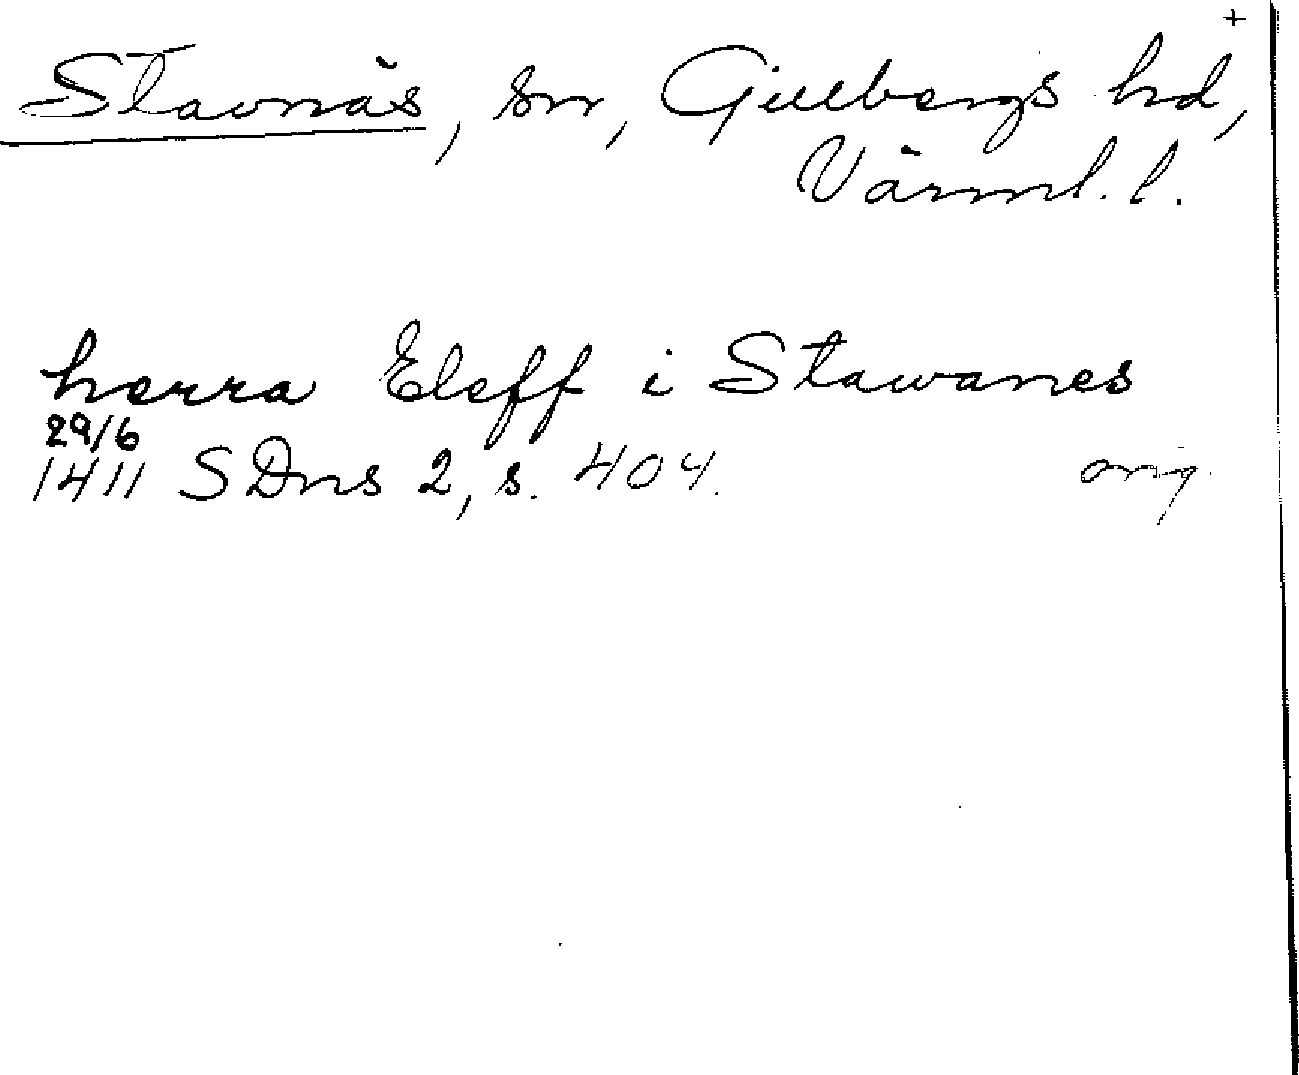 +
Stavnäs, sn, Gillbergs hd,
Värml. l.
herra Eleff i Stawanes
29/6
1411 SDns 2, s. 404. orig.